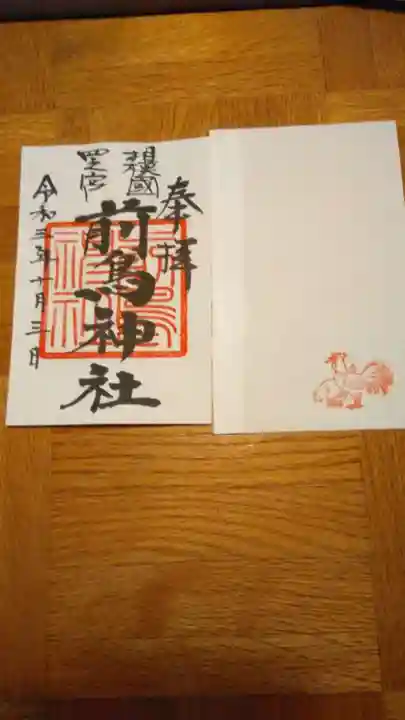 奉拝
相模國
四之宮
前鳥神社
令和三年十月三日
前鳥神社